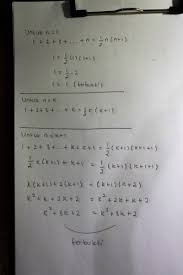 Untuk n=1
1+2+3+....+n = 1/2 n(n+1)
1 = 1/2 (1)(1+1)
1 = 1/2 . 2
1 = 1 (terbukti)
Untuk n=k
1+2+3+....+k = 1/2 k(k+1)
Untuk n=k+1
1+2+3+....+k+k+1 = 1/2 (k+1)(k+1+1)
1/2 k(k+1)+k+1 = 1/2 (k+1)(k+1+1)
k(k+1)+2(k+1) = (k+1)(k+2)
k²+k+2k+2 = k²+2k+k+2
k²+3k+2 = k²+3k+2
terbukti